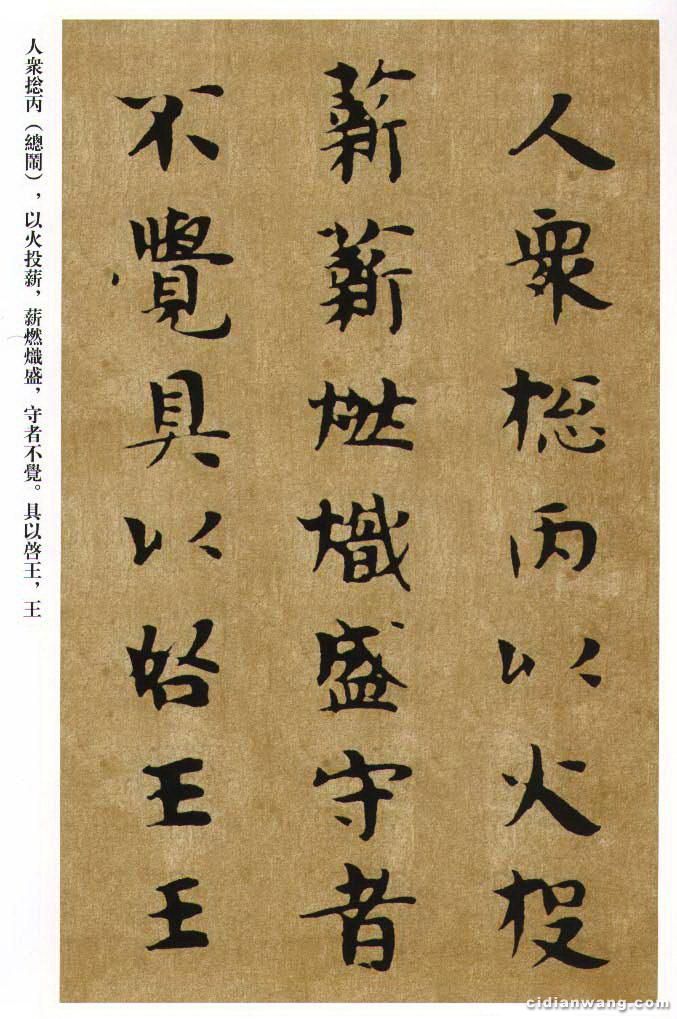 人衆捴丙以火投
薪薪燃熾盛守者
不覺具以啓王王
人衆捴丙（總鬧），以火投薪，薪燃熾盛，守者不覺。具以啓王，王
cidianwang.com